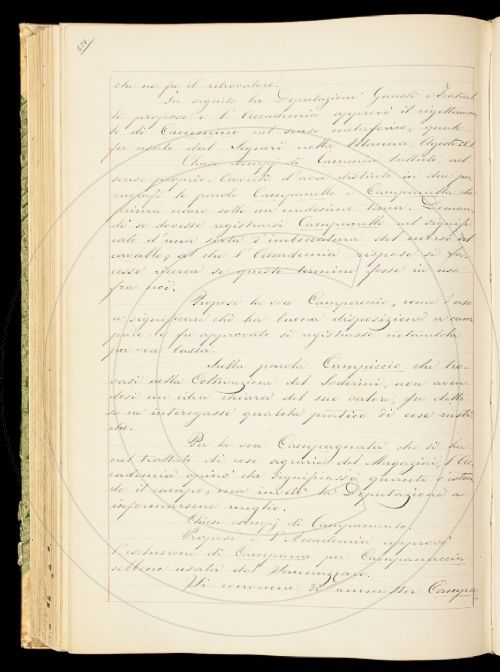 che ne fu il ritrovatore.
In seguito la Deputazione Guasti e
li propose e l'Accademia approvò il
ti di Cammino nel senso metaforico, quale
fu usato dal Segneri nella Manna, Agosto 28.1
Chiese esempj di Cammino battuto nel
senso proprio. L'avviò s'era distinto in due pa
ragrafi le parole Campanella e Campanello che
prima erano sotto un medesimo tema. Doman
dò se dovesse registrarsi Campanella nel signifi
cato d'una sorta d'imboccatura del morso del
cavallo; al che l'Accademia rispose si fa
cesse ricerca se questo termine fosse in uso
fra noi.
Propose la voce Campereccio, come d'uso
a significare chi ha buona disposizione a cam
pare e fu approvato si registrasse notandola
per voce bassa.
Sulla parola Campiccio che tro
vasi nella Coltivazione del Soderini, non aven
dosi un'idea chiara del suo valore, fu detto
se ne interrogasse qualche pratico di cose rusti
che.
Per la voce Campagnata che si ha
nel trattato di cose agrarie del Magazzini, l'Ac
cademia opinò che significasse quanto è esteso
il campo, ma invitò la Deputazione a
informarsene meglio.
Chiese esempj di Campamento.
Propose e l'Accademia approvò
l'esclusione di Campana per
sebbene usata dal Sannazzaro.
Si convenne di ammetter Campa